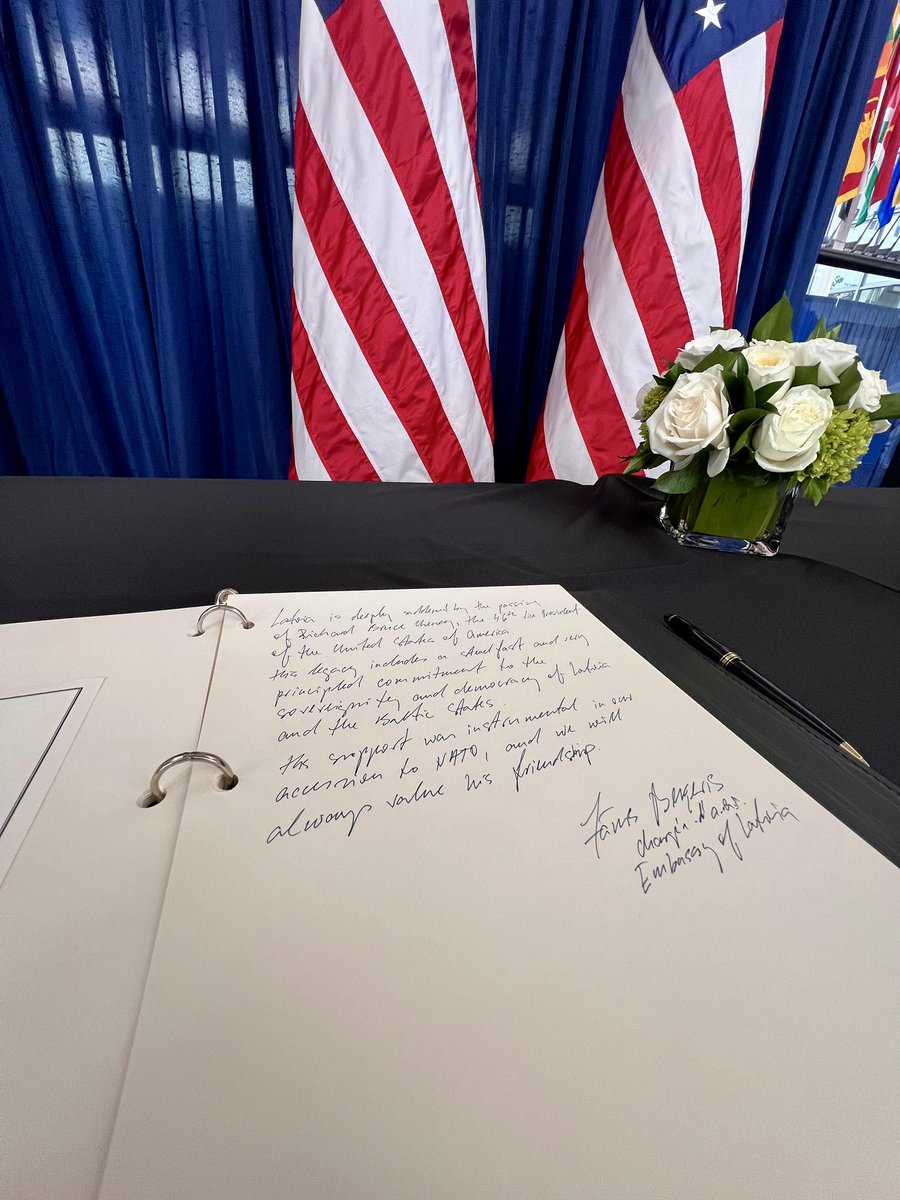 Latvia is deeply saddened by the passing
of Richard Bruce Cheney, the 46th Vice President
of the United States of America
His legacy includes a steadfast and very
principled commitment to the
sovereignity and democracy of Latvia
and the Baltic States.
His support was instrumental in our
accession to NATO, and we will
always value his friendship.
Bergeris
Embassy of Latvia